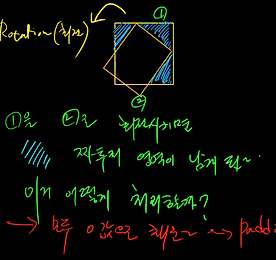 Rotation (회전)
①
②
①을 ②로 회전시키면
짜투리 영역이 남게 됨~
이거 어떻게 처리할까?
→ 모두 0값으로 채운다 ~> padd